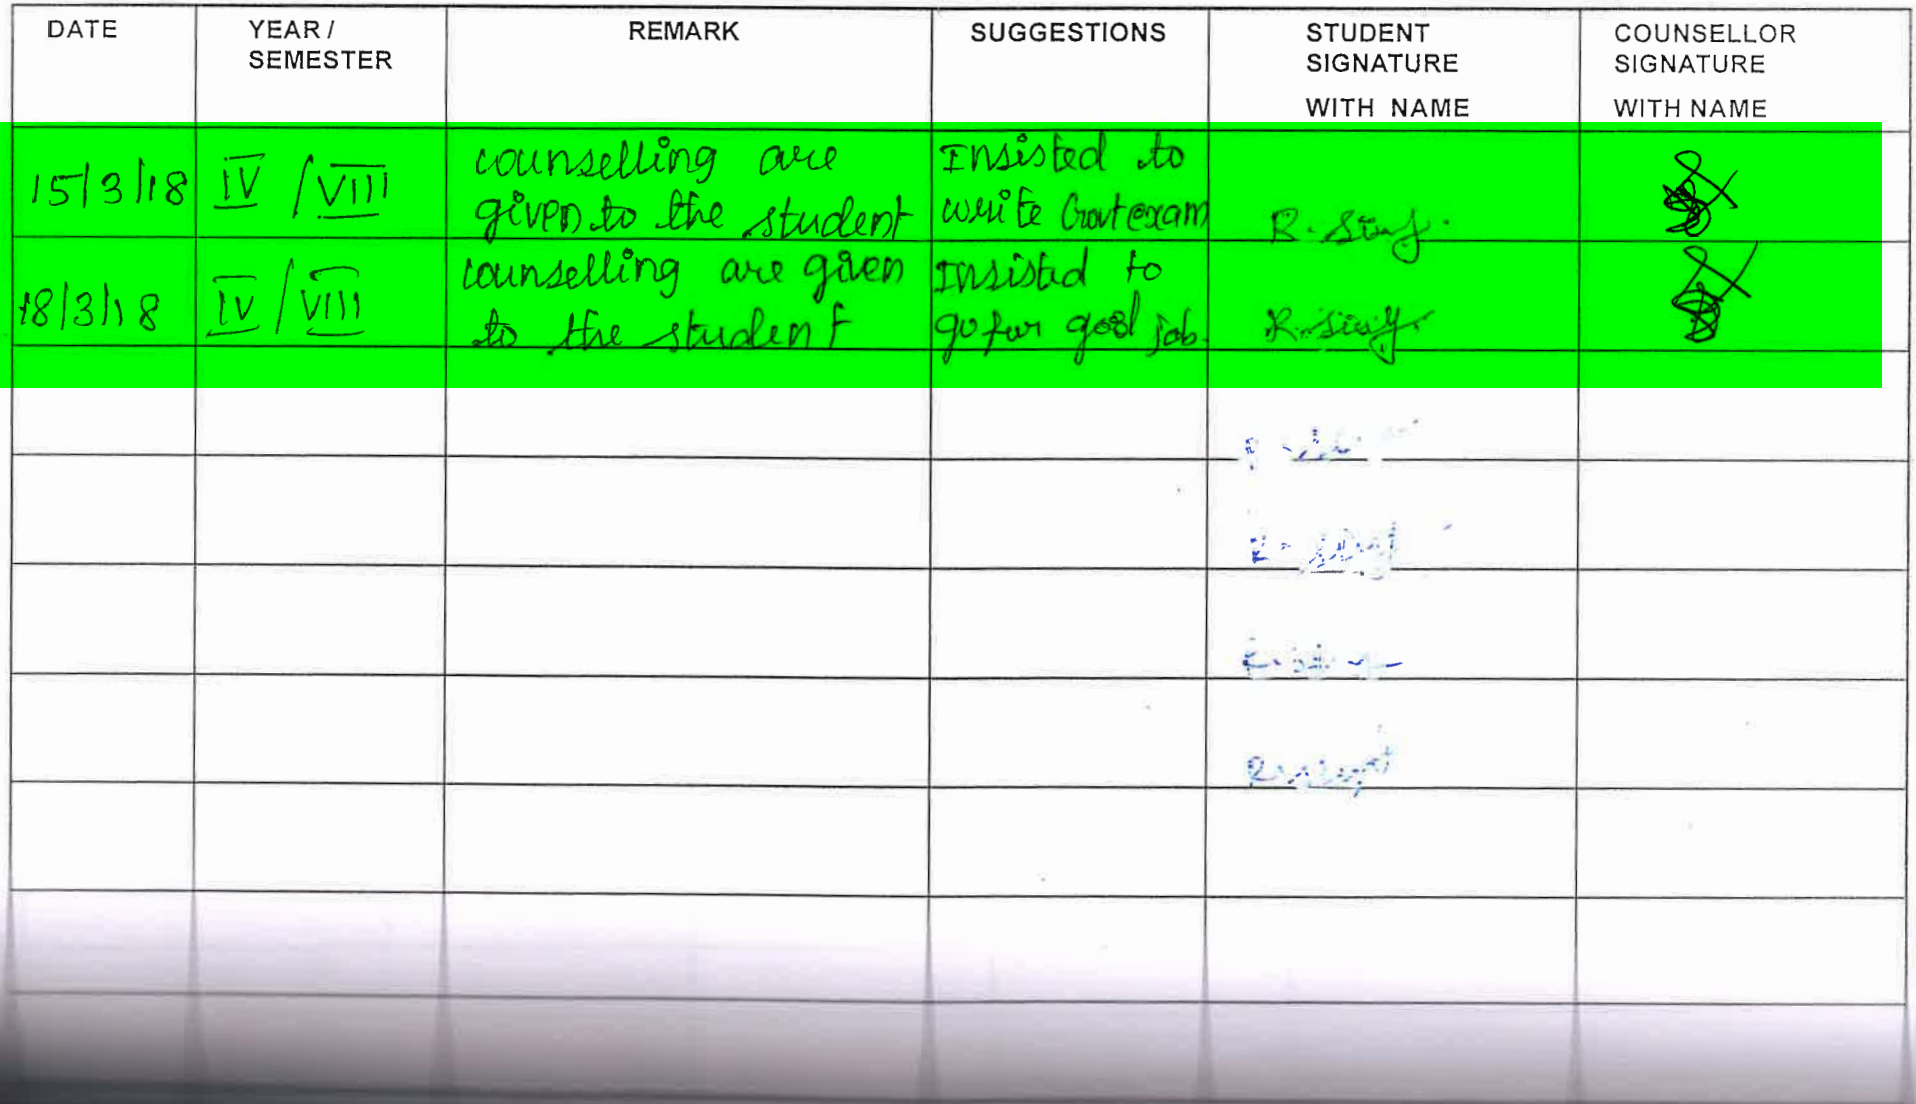 DATE
YEAR /
SEMESTER
REMARK
SUGGESTIONS
STUDENT
SIGNATURE
WITH NAME
COUNSELLOR
SIGNATURE
WITH NAME
15/3/18
IV / VIII
counselling are
given to the student
Insisted to
write Govt exam
18/3/18
IV / VIII
counselling are given
to the student
Insisted to
go for good job.